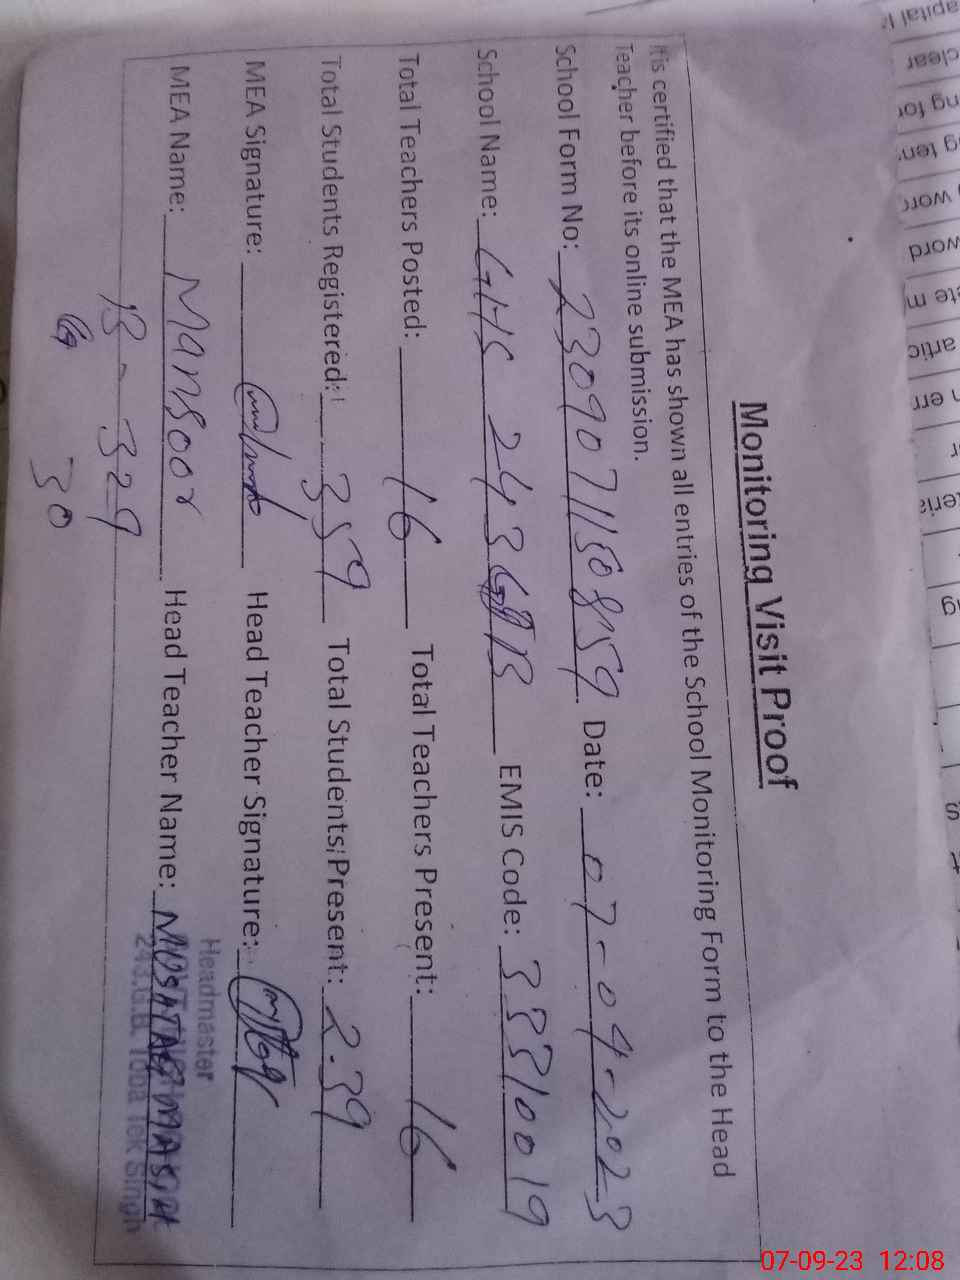 Monitoring Visit Proof
It is certified that the MEA has shown all entries of the School Monitoring Form to the Head
Teacher before its online submission.
School Form No: 2309071180859 Date: 07-09-2023
School Name: GHS 243 GB EMIS Code: 33310019
Total Teachers Posted: 16 Total Teachers Present: 16
Total Students Registered: 359 Total Students Present: 239
MEA Signature: Head Teacher Signature:
MEA Name: Mansoor Head Teacher Name:
Headmaster
243.G.B. Toba Tek Singh
B - 329
30
apital
clear
ng for
word
artic
err
07-09-23 12:08